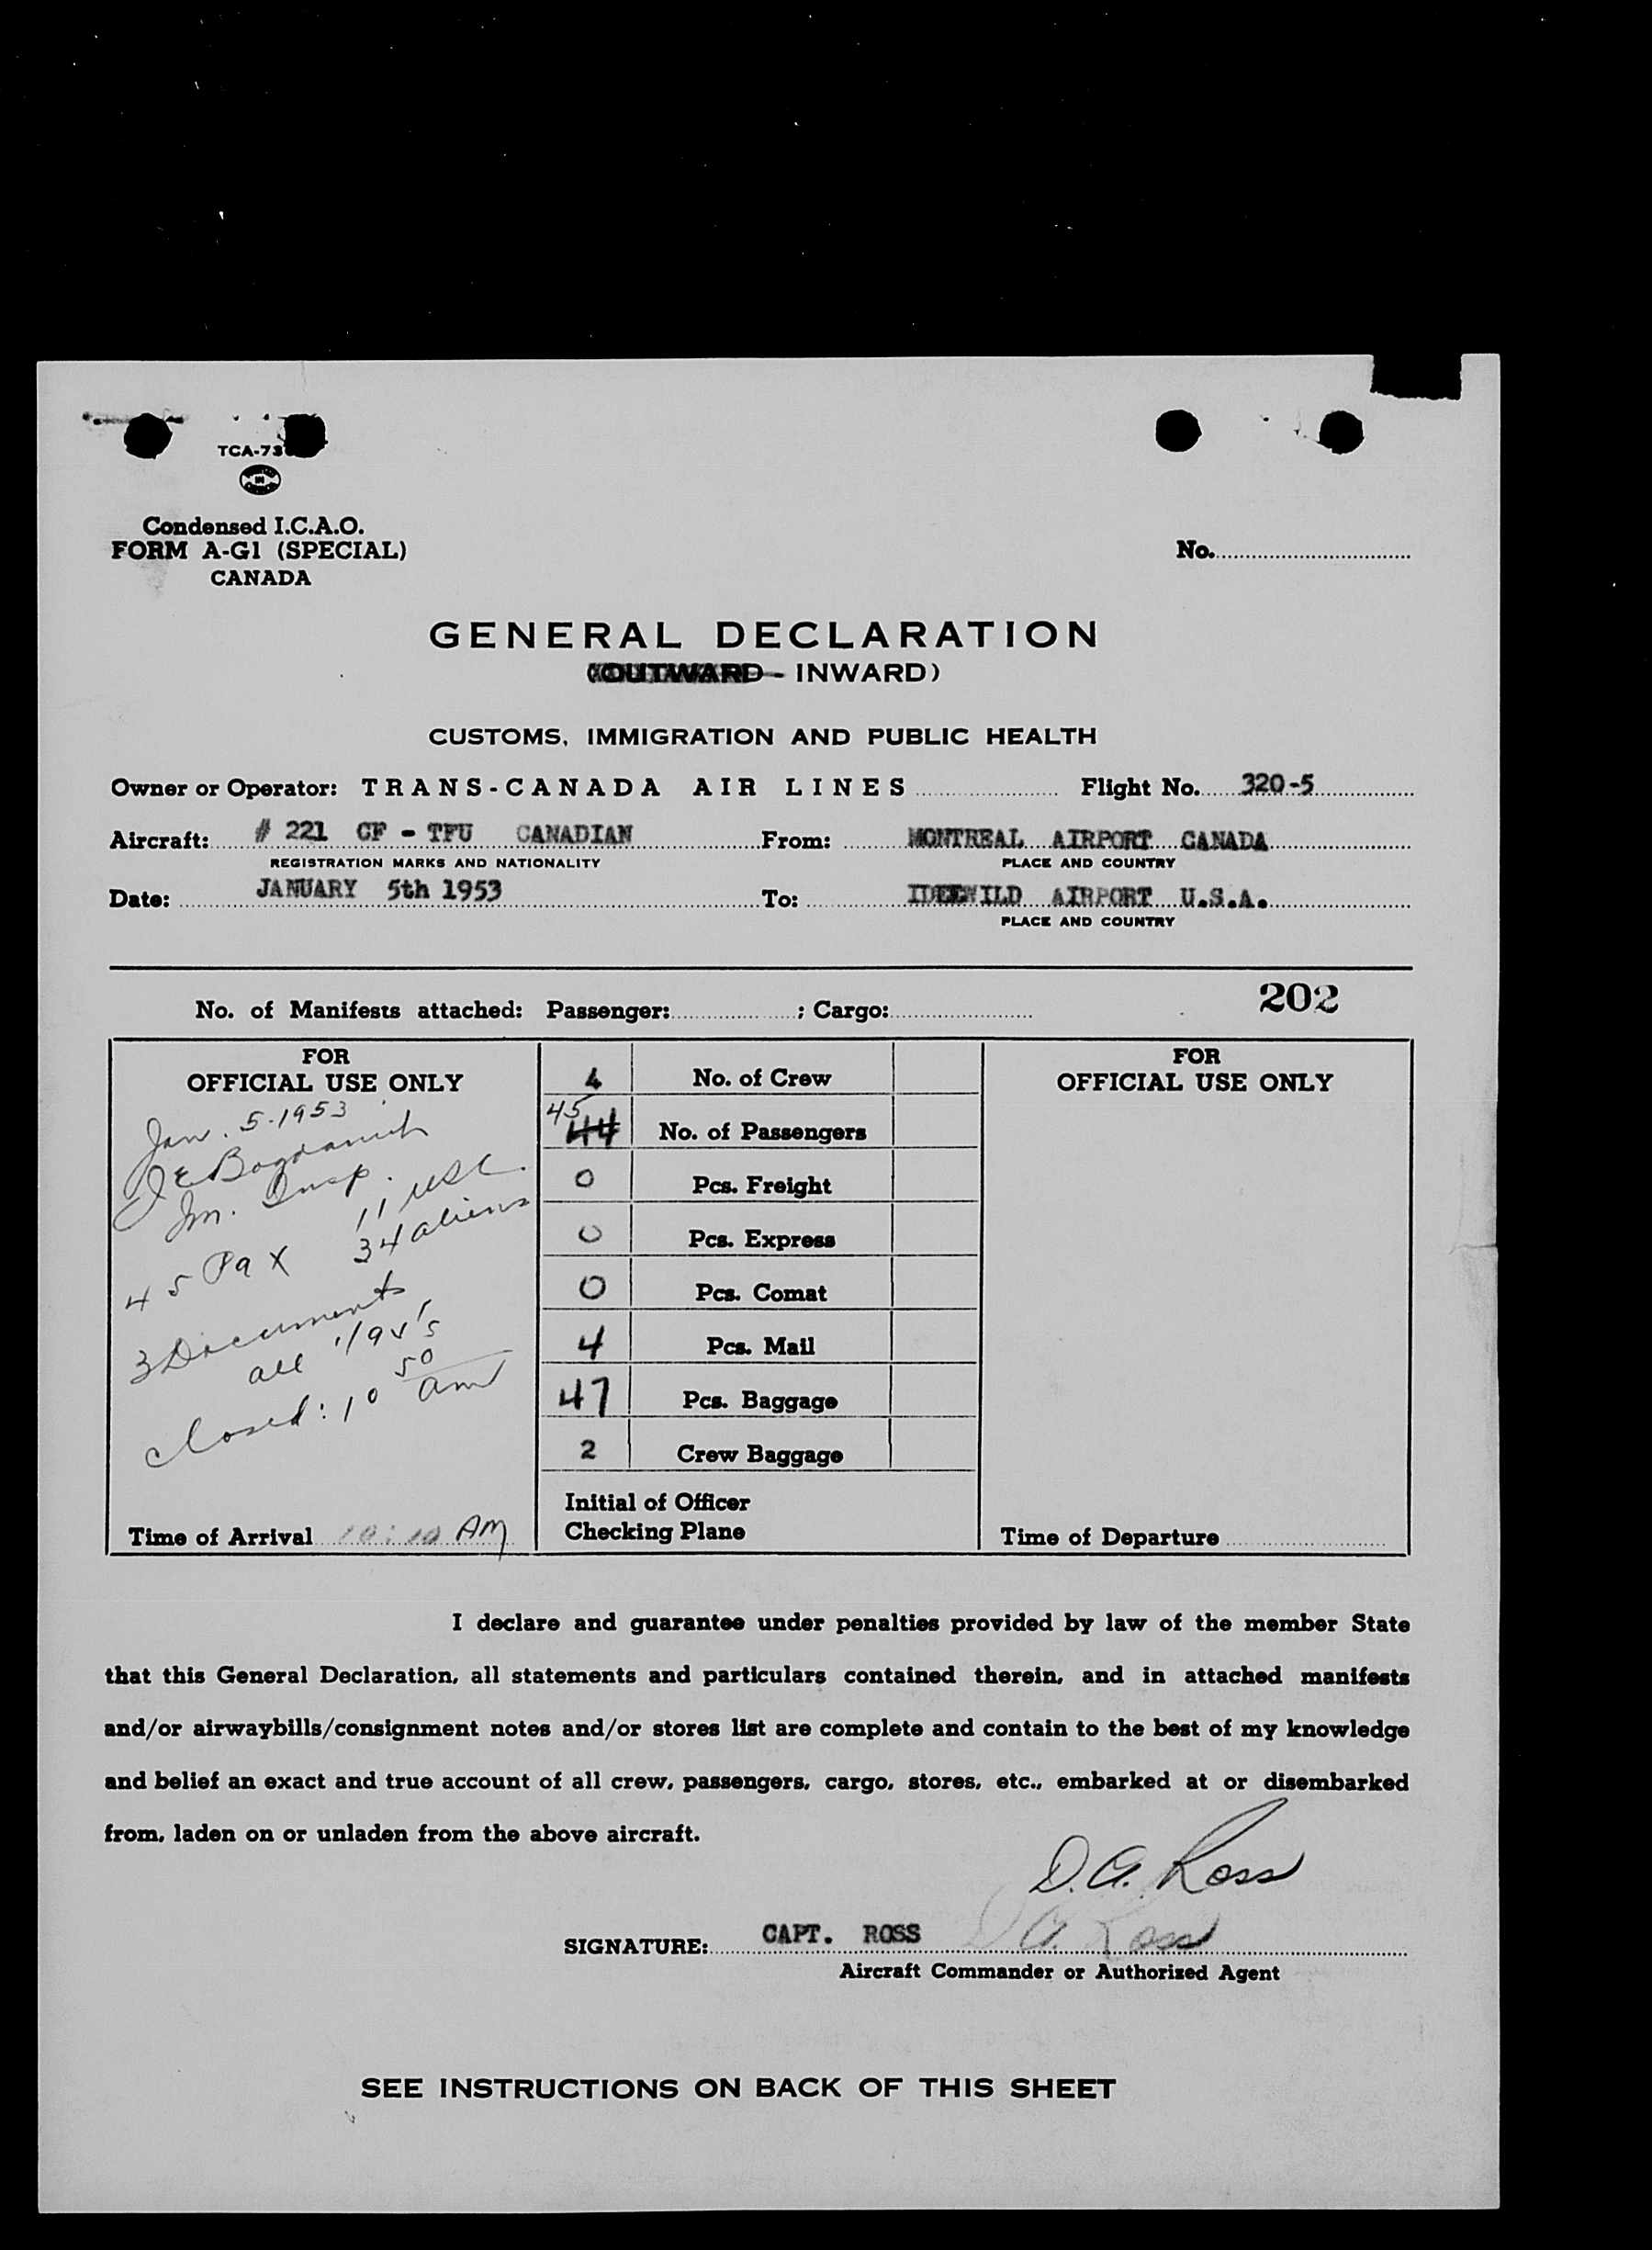 TCA-73
Condensed I.C.A.O.
FORM A-G1 (SPECIAL)
CANADA
No.
GENERAL DECLARATION
(OUTWARD - INWARD)
CUSTOMS, IMMIGRATION AND PUBLIC HEALTH
Owner or Operator: TRANS-CANADA AIR LINES Flight No. 320-5
Aircraft: # 221 CF - TFU CANADIAN From: MONTREAL AIRPORT CANADA
REGISTRATION MARKS AND NATIONALITY PLACE AND COUNTRY
Date: JANUARY 5th 1953 To: IDELWILD AIRPORT U.S.A.
PLACE AND COUNTRY
No. of Manifests attached: Passenger: ; Cargo: 202
FOR
OFFICIAL USE ONLY
Jan. 5-1953
J E Bogdanich
Im. Insp.
11 USC
45 Pax 34 aliens
3 Documents
all
Closed: 10 50 am
Time of Arrival 10:10 AM
4 No. of Crew
45 44 No. of Passengers
0 Pcs. Freight
0 Pcs. Express
0 Pcs. Comat
4 Pcs. Mail
47 Pcs. Baggage
2 Crew Baggage
Initial of Officer
Checking Plane
FOR
OFFICIAL USE ONLY
Time of Departure
I declare and guarantee under penalties provided by law of the member State
that this General Declaration, all statements and particulars contained therein, and in attached manifests
and/or airwaybills/consignment notes and/or stores list are complete and contain to the best of my knowledge
and belief an exact and true account of all crew, passengers, cargo, stores, etc., embarked at or disembarked
from, laden on or unladen from the above aircraft.
D.A. Ross
SIGNATURE: CAPT. ROSS D A. Ross
Aircraft Commander or Authorized Agent
SEE INSTRUCTIONS ON BACK OF THIS SHEET